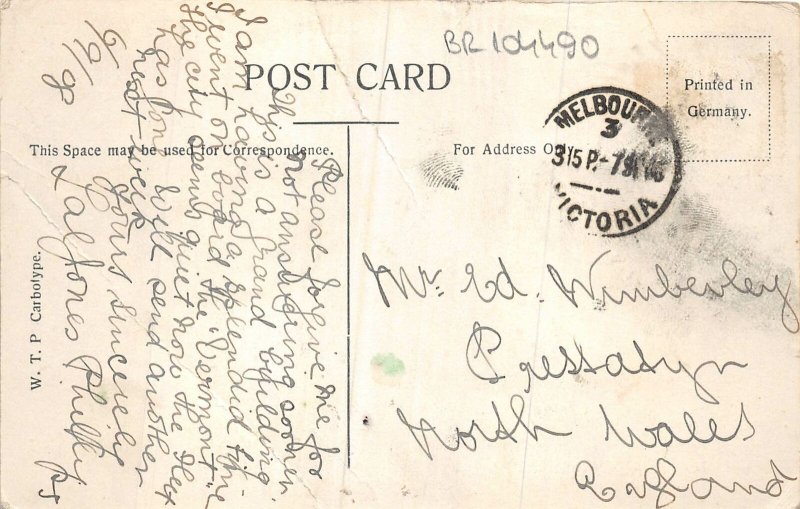 BR 104490
POST CARD
Printed in
Germany.
This Space may be used for Correspondence.
For Address O
MELBOUR
3
3 15 P - 7
VICTORIA
W. T. P Carbotype.
Please forgive me for
not answering sooner.
This is a grand building
I am having a splendid time
I went on board the "Vermont"
The city seems quiet now the Flex
has gone will send another
next week
Yours Sincerely
Lal Jones
6/9/8
Mr. Ed. Wimberley
North Wales
England